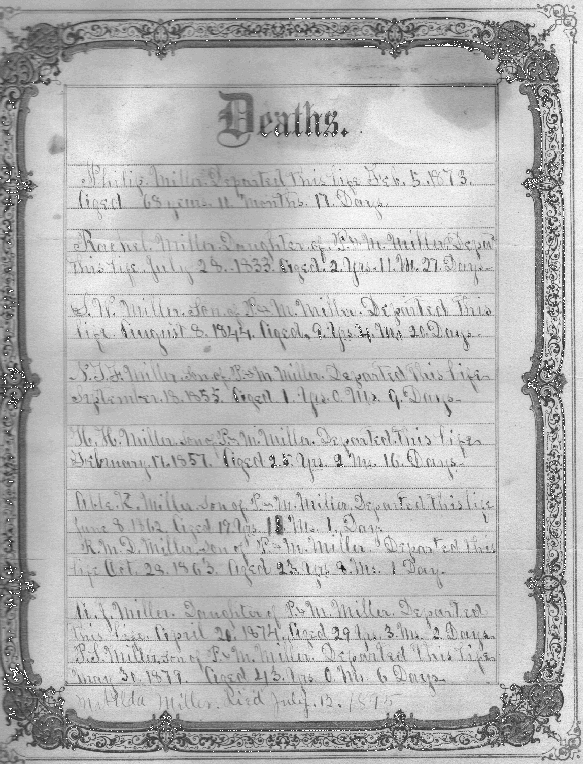 Deaths.
Philip Miller Departed this life Feb. 5. 1873.
Aged 68 years 11 Months 17 Days
Rachel Miller Daughter of P & M Miller Depar
this life July 28. 1833. Aged 2 Yrs. 11 M. 27 Days
S. W. Miller Son of P & M. Miller. Departed this
life August 8. 1844. Aged 9 Yrs 4 Ms 20 Days.
Miller Son of P & M Miller. Departed this life
September 18. 1855. Aged 1 Yrs 0 Ms. 9 Days
H. H. Miller son of P & M. Miller. Departed this life
February 17. 1857. Aged 25 Yrs. 2 Ms. 16 Days
Able K. Miller Son of P & M. Miller. Departed this life
June 8 1862 Aged 19 Yrs Ms. 1 Day
Miller son of P & M. Miller Departed this
life Oct. 28. 1863. Aged 23 Yrs 8 Ms. 1 Day.
M. J. Miller. Daughter of P & M Miller. Departed
this life. April 20. 1874. Aged 29 Yrs. 3 Ms. 2 Days
P. S. Miller son of P & M. Miller. Departed this life
May 30. 1879. Aged 43 Yrs 0 Ms 6 Days
Matilda Miller. Died July. 13. 1895